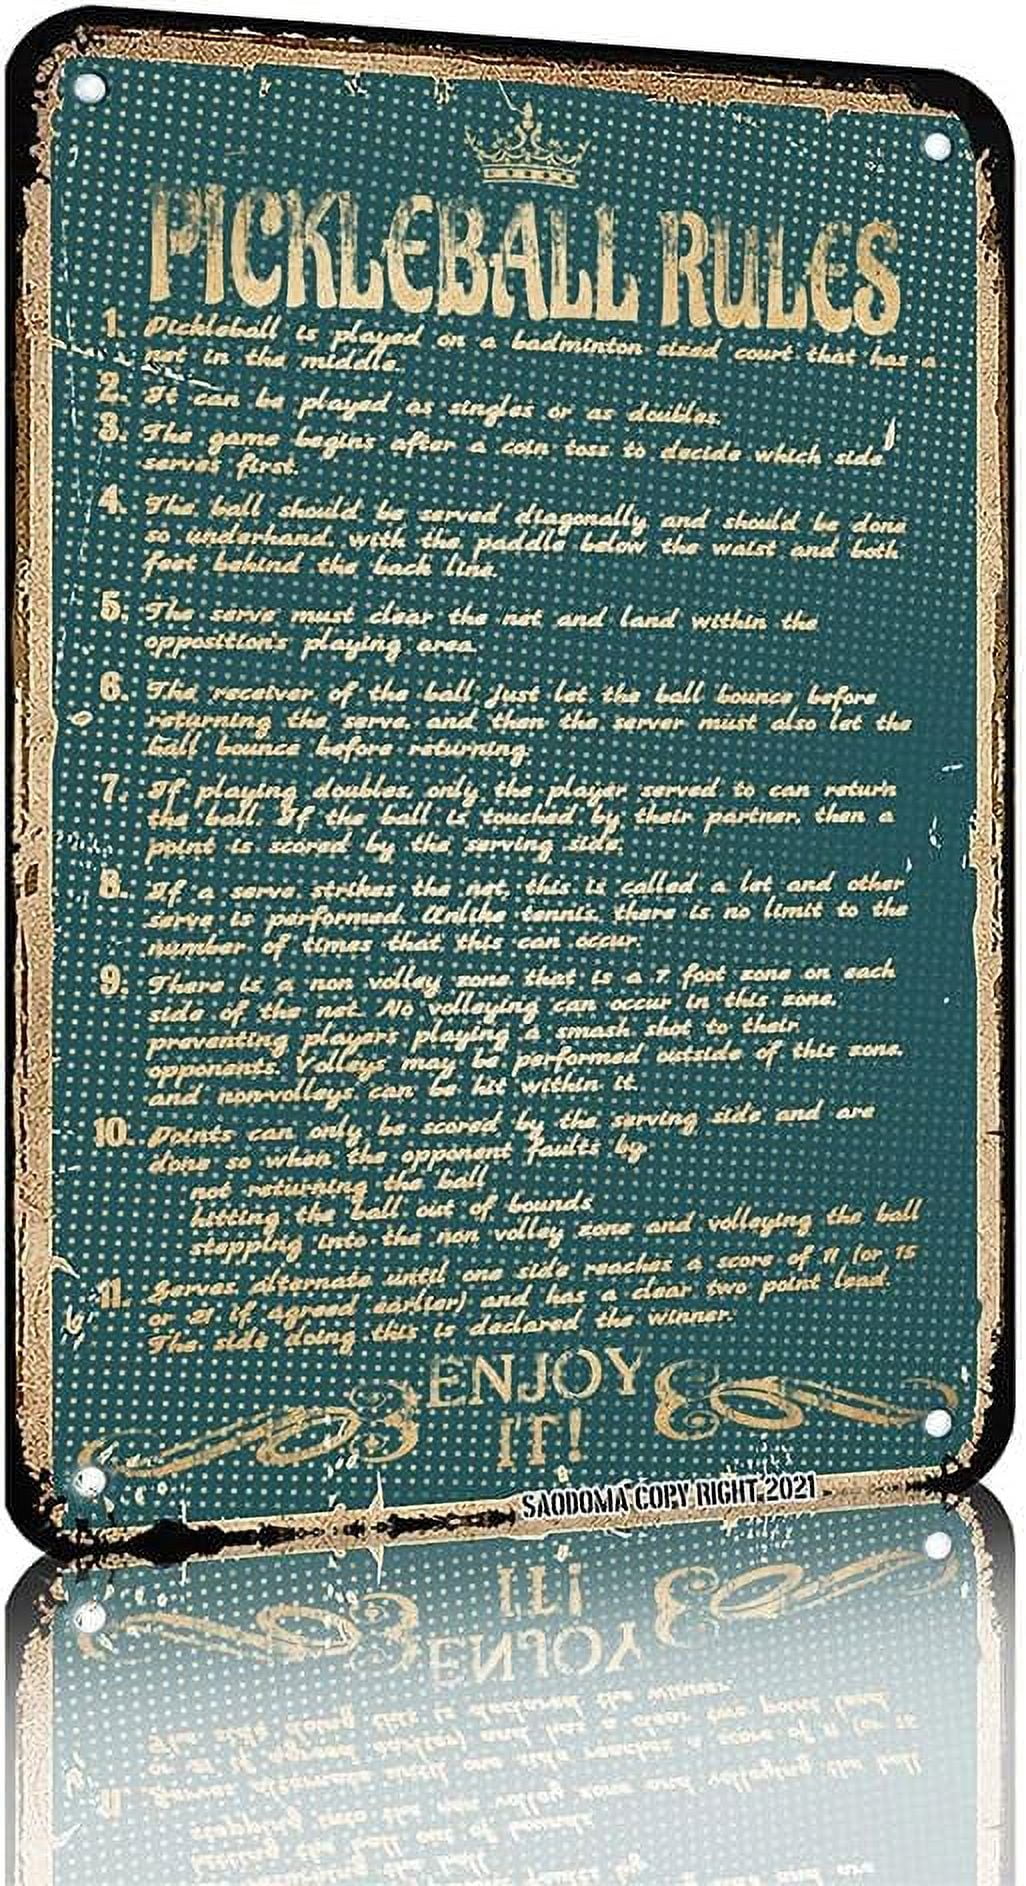 PICKLEBALL RULES
1. Pickleball is played on a badminton sized court that has a
net in the middle.
2. It can be played as singles or as doubles.
3. The game begins after a coin toss to decide which side
serves first.
4. The ball should be served diagonally and should be done
so underhand, with the paddle below the waist and both
feet behind the back line.
5. The serve must clear the net and land within the
opposition's playing area.
6. The receiver of the ball just let the ball bounce before
returning the serve, and then the server must also let the
ball bounce before returning.
7. If playing doubles, only the player served to can return
the ball. If the ball is touched by their partner, then a
point is scored by the serving side.
8. If a serve strikes the net, this is called a let and other
serve is performed. Unlike tennis, there is no limit to the
number of times that this can occur.
9. There is a non volley zone that is a 7 foot zone on each
side of the net. No volleying can occur in this zone,
preventing players playing a smash shot to their
opponents. Volleys may be performed outside of this zone,
and non-volleys can be hit within it.
10. Points can only be scored by the serving side and are
done so when the opponent faults by:
not returning the ball
hitting the ball out of bounds
stepping into the non volley zone and volleying the ball
11. Serves alternate until one side reaches a score of 11 (or 15
or 21 if agreed earlier) and has a clear two point lead.
The side doing this is declared the winner.
ENJOY
IT!
SAODOMA COPY RIGHT 2021